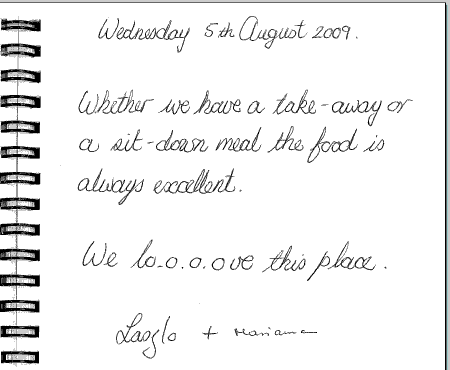 Wednesday 5th August 2009.
Whether we have a take-away or
a sit-down meal the food is
always excellent.
We lo.o.o.ove this place.
Laszlo + Mariann